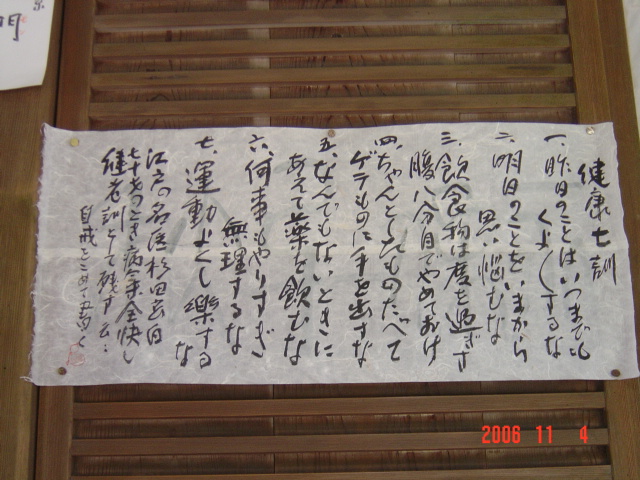 健康七訓
一、昨日のことはいつまでも
くよくよするな
二、明日のことをいまから
思い悩むな
三、飲食物は度を過ぎず
腹八分目でやめておけ
四、ちゃんとしたものたべて
ゲテものに手を出すな
五、なんでもないときに
あえて薬を飲むな
六、何事もやりすぎ
無理するな
七、運動よくし楽する
な
江戸の名医杉田玄白
七十才のとき病気全快し
養老訓として残す云々
自戒をこめて
明
2006 11 4